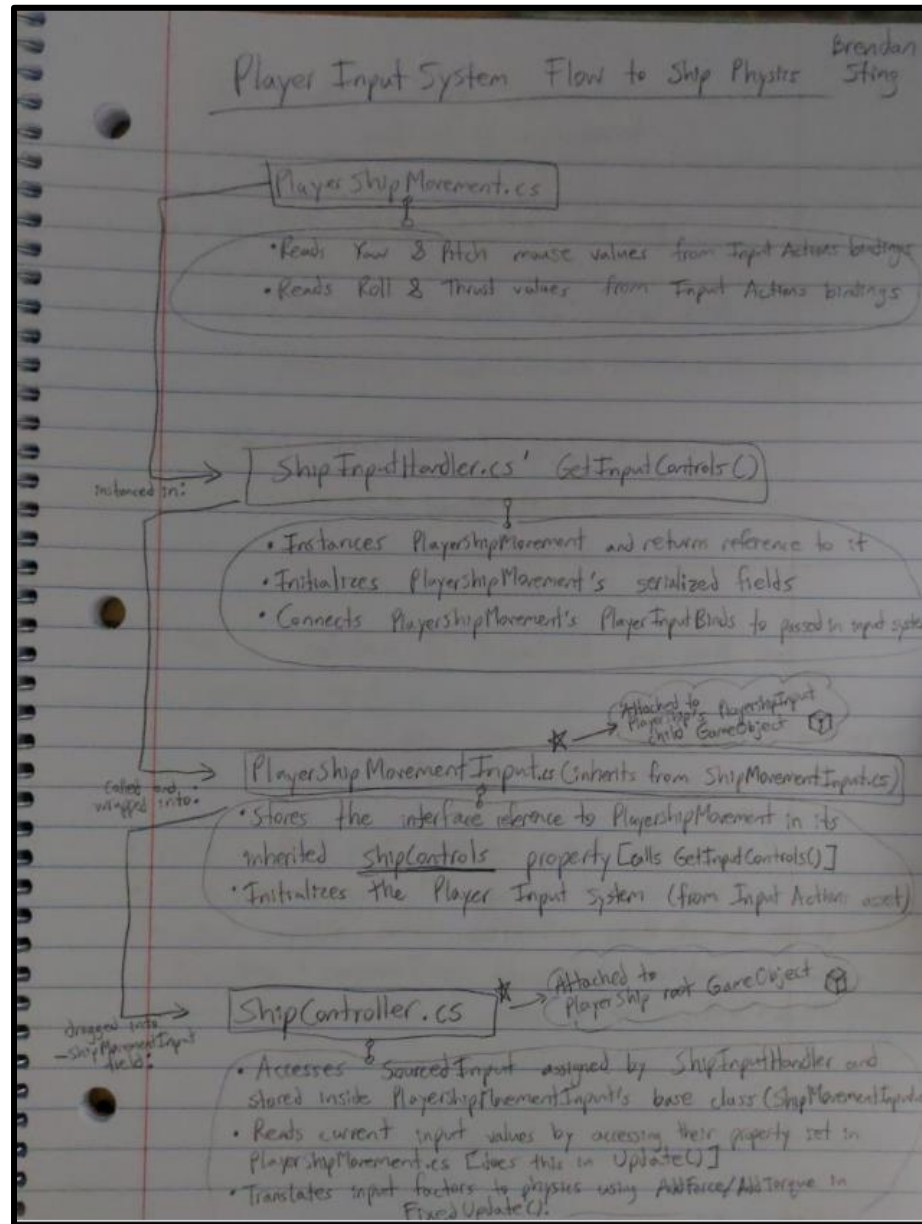 Brendan
Player Input System Flow to Ship Physics Sting
PlayerShipMovement.cs
• Reads Yaw & Pitch mouse values from Input Actions bindings
• Reads Roll & Thrust values from Input Actions bindings
instanced in:
ShipInputHandler.cs' GetInputControls()
• Instances PlayerShipMovement and returns reference to it
• Initializes PlayerShipMovement's serialized fields
• Connects PlayerShipMovement's PlayerInputBinds to passed in input system
Attached to
PlayerShip's PlayerShipInput
child GameObject
called and
wrapped into:
PlayerShipMovementInput.cs (inherits from ShipMovementInput.cs)
• Stores the interface reference to PlayerShipMovement in its
inherited shipControls property [calls GetInputControls()]
• Initializes the Player Input System (from Input Actions asset)
Attached to
PlayerShip root GameObject
dragged into
_ShipMovementInput
field:
ShipController.cs
• Accesses SourcedInput assigned by ShipInputHandler and
stored inside PlayerShipMovementInput's base class (ShipMovementInput
• Reads current input values by accessing their property set in
PlayerShipMovement.cs [does this in Update()]
• Translates input factors to physics using AddForce/AddTorque in
FixedUpdate()!